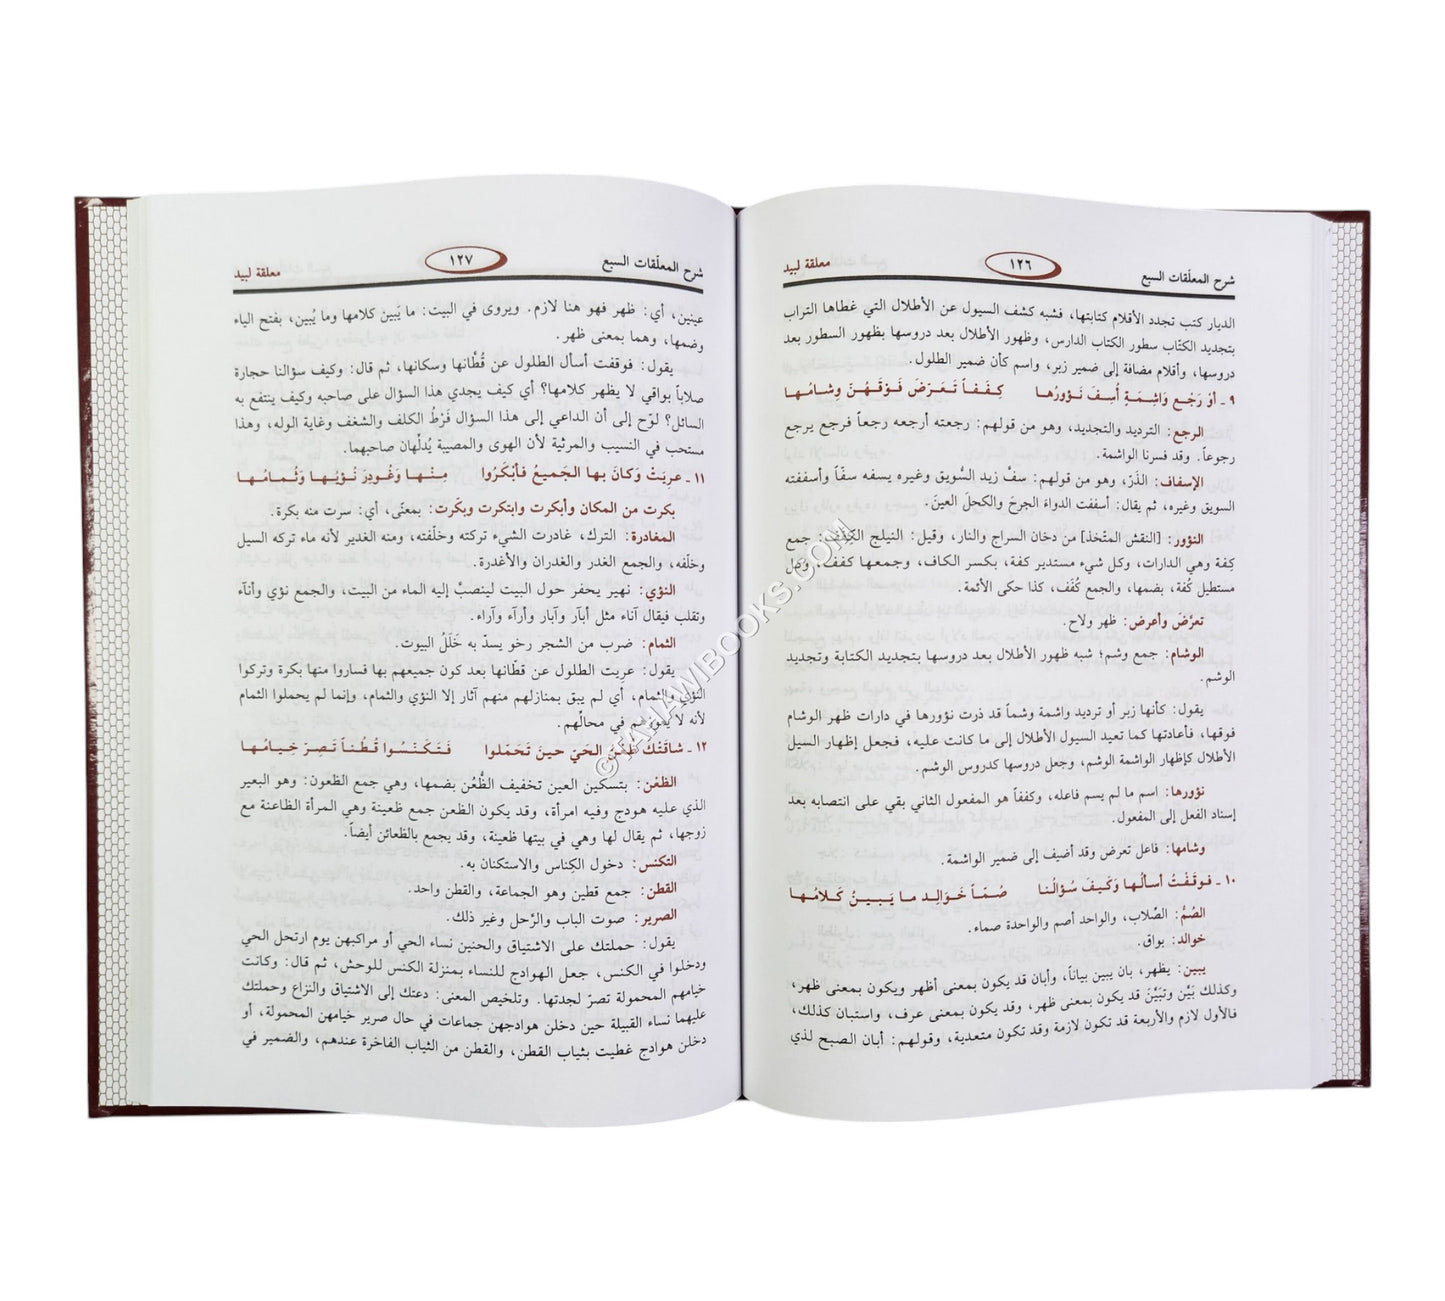 شرح المعلّقات السبع
١٢٦
معلقة لبيد
الديار كتب تجدد الأقلام كتابتها، فشبه كشف السيول عن الأطلال التي غطاها التراب
بتجديد الكتّاب سطور الكتاب الدارس، وظهور الأطلال بعد دروسها بظهور السطور بعد
دروسها، وأقلام مضافة إلى ضمير زبر، واسم كأن ضمير الطلول.
٩ ـ أوْ رَجْعِ وَاشِمَةٍ أُسِفَ نَؤورُها كِفَفاً تَعَرَضَ فَوْقَهُنَ وِشامُها
الرجع: الترديد والتجديد، وهو من قولهم: رجعته أرجعه رجعاً فرجع يرجع
رجوعاً. وقد فسرنا الواشمة.
الإسفاف: الذَرّ، وهو من قولهم: سفّ زيد السَّويق وغيره يسفه سفّاً وأسففته
السويق وغيره، ثم يقال: أسففت الدواءَ الجرحَ والكحلَ العينَ.
النؤور: [النقش المتّخذ] من دخان السراج والنار، وقيل: النيلج الكِفَف: جمع
كِفة وهي الدارات، وكل شيء مستدير كفة، بكسر الكاف، وجمعها كفف، وكل
مستطيل كُفة، بضمها، والجمع كُفَف، كذا حكى الأئمة.
تعرَّض وأعرض: ظهر ولاح.
الوشام: جمع وشم؛ شبه ظهور الأطلال بعد دروسها بتجديد الكتابة وتجديد
الوشم.
يقول: كأنها زبر أو ترديد واشمة وشماً قد ذرت نؤورها في دارات ظهر الوشام
فوقها، فأعادتها كما تعيد السيول الأطلال إلى ما كانت عليه، فجعل إظهار السيل
الأطلال كإظهار الواشمة الوشم، وجعل دروسها كدروس الوشم.
نؤورها: اسم ما لم يسم فاعله، وكففاً هو المفعول الثاني بقي على انتصابه بعد
إسناد الفعل إلى المفعول.
وشامها: فاعل تعرض وقد أضيف إلى ضمير الواشمة.
١٠ ـ فوقفْتُ أسألُها وَكَيفَ سُؤالُنا صُمّاً خَوَالِدَ ما يَبينُ كَلامُها
الصُمُّ: الصِّلاب، والواحد أصم والواحدة صماء.
خوالد: بواق.
يبين: يظهر، بان يبين بياناً، وأبان قد يكون بمعنى أظهر ويكون بمعنى ظهر،
وكذلك بَيَّن وتبَيَّنَ قد يكون بمعنى ظهر، وقد يكون بمعنى عرف، واستبان كذلك،
فالأول لازم والأربعة قد تكون لازمة وقد تكون متعدية، وقولهم: أبان الصبح لذي
شرح المعلّقات السبع
١٢٧
معلقة لبيد
عينين، أي: ظهر فهو هنا لازم. ويروى في البيت: ما يَبين كلامها وما يُبين، بفتح الياء
وضمها، وهما بمعنى ظهر.
يقول: فوقفت أسأل الطلول عن قُطّانها وسكانها، ثم قال: وكيف سؤالنا حجارة
صلاباً بواقي لا يظهر كلامها؟ أي كيف يجدي هذا السؤال على صاحبه وكيف ينتفع به
السائل؟ لوّح إلى أن الداعي إلى هذا السؤال فَرْطُ الكلف والشغف وغاية الوله، وهذا
مستحب في النسيب والمرثية لأن الهوى والمصيبة يُدلِّهان صاحبهما.
١١ ـ عريَتْ وَكانَ بها الجَميعُ فأبْكَرُوا مِنْها وَغُودِرَ نُؤيُها وَثُمامُها
بكرت من المكان وأبكرت وابتكرت وبكّرت: بمعنًى، أي: سرت منه بكرة.
المغادرة: الترك، غادرت الشيء تركته وخلّفته، ومنه الغدير لأنه ماء تركه السيل
وخلّفه، والجمع الغدر والغدران والأغدرة.
النؤي: نهير يحفر حول البيت لينصبَّ إليه الماء من البيت، والجمع نؤي وأنآء
وتقلب فيقال آناء مثل أبآر وآبار وأرآء وآراء.
الثمام: ضرب من الشجر رخو يسدّ به خَلَلُ البيوت.
يقول: عريت الطلول عن قطّانها بعد كون جميعهم بها فساروا منها بكرة وتركوا
النؤي والثمام، أي لم يبق بمنازلهم منهم آثار إلا النؤي والثمام، وإنما لم يحملوا الثمام
لأنه لا يعوزهم في محالّهم.
١٢ ـ شاقَتْكَ ظُعْنُ الحَيّ حينَ تَحَمَلوا فَتَكَنّسُوا قُطُناً تَصِرَ خِيامُها
الظعْن: بتسكين العين تخفيف الظُّعُن بضمها، وهي جمع الظعون: وهو البعير
الذي عليه هودج وفيه امرأة، وقد يكون الظعن جمع ظعينة وهي المرأة الظاعنة مع
زوجها، ثم يقال لها وهي في بيتها ظعينة، وقد يجمع بالظعائن أيضاً.
التكنس: دخول الكِناس والاستكنان به.
القطن: جمع قطين وهو الجماعة، والقطن واحد.
الصرير: صوت الباب والرَّحل وغير ذلك.
يقول: حملتك على الاشتياق والحنين نساء الحي أو مراكبهن يوم ارتحل الحي
ودخلوا في الكنس، جعل الهوادج للنساء بمنزلة الكنس للوحش، ثم قال: وكانت
خيامهم المحمولة تصرّ لجدتها. وتلخيص المعنى: دعتك إلى الاشتياق والنزاع وحملتك
عليهما نساء القبيلة حين دخلن هوادجهن جماعات في حال صرير خيامهن المحمولة، أو
دخلن هوادج غطيت بثياب القطن، والقطن من الثياب الفاخرة عندهم، والضمير في
©TAHAWIBOOKS.COM